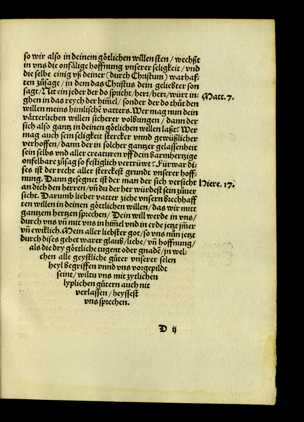 so wir also in deinem götlichen willen sten / wechßt
in vns die onfälige hoffnung vnserer seligkeit / vnd
die selbe einig vß deiner (durch Christum) warhaf-
ten zůsage / in dem das Christus dein geliebter son
sagt / Nit ein jeder der do spricht / herr / herr / würt in-
ghen in das reych der himel / sonder der do thůt den
willen meins himlische vatters. Wer mag nun dein
vätterlichen willen sicherer volbringen / dann der
sich also gantz in deinen götlichen willen laßt: Wer
mag auch sein seligkeit stercker vnnd gewüßlicher
verhoffen / dann der in solcher gantzer gelassenheit
sein selbs vnd aller creaturen vff dein barmhertzige
onfelbare zůsag so festiglich vertruwt: Fürwar di-
ses ist der recht aller sterckest grunde vnserer hoff-
nung. Dann gesegnet ist der man der sich versicht
an dich den herren / vñ du der her würdest sein zůuer
sicht. Darumb lieber vatter ziehe vnsern buchhafft
en willen in deinen götlichen willen / das wir mitt
gantzem hertzen sprechen / Dein will werde in vns /
durch vns vñ mit vns in himel vnd in erde jetz ymer
vñ ewiklich. Mein aller liebster got / so vns nun jetz
durch dises gebet warer glaub / liebe / vñ hoffnung /
als die dry götliche tugent oder gnade / in wel-
chen alle geystliche güter vnserer selen
heyl begriffen vnnd vns vorgepildt
seint / wiltu vns mit zytlichen
lyplichen gütern auch nit
verlassen / heyssest
vns sprechen.
Matt. 7.
Hiere. 17.
D ij